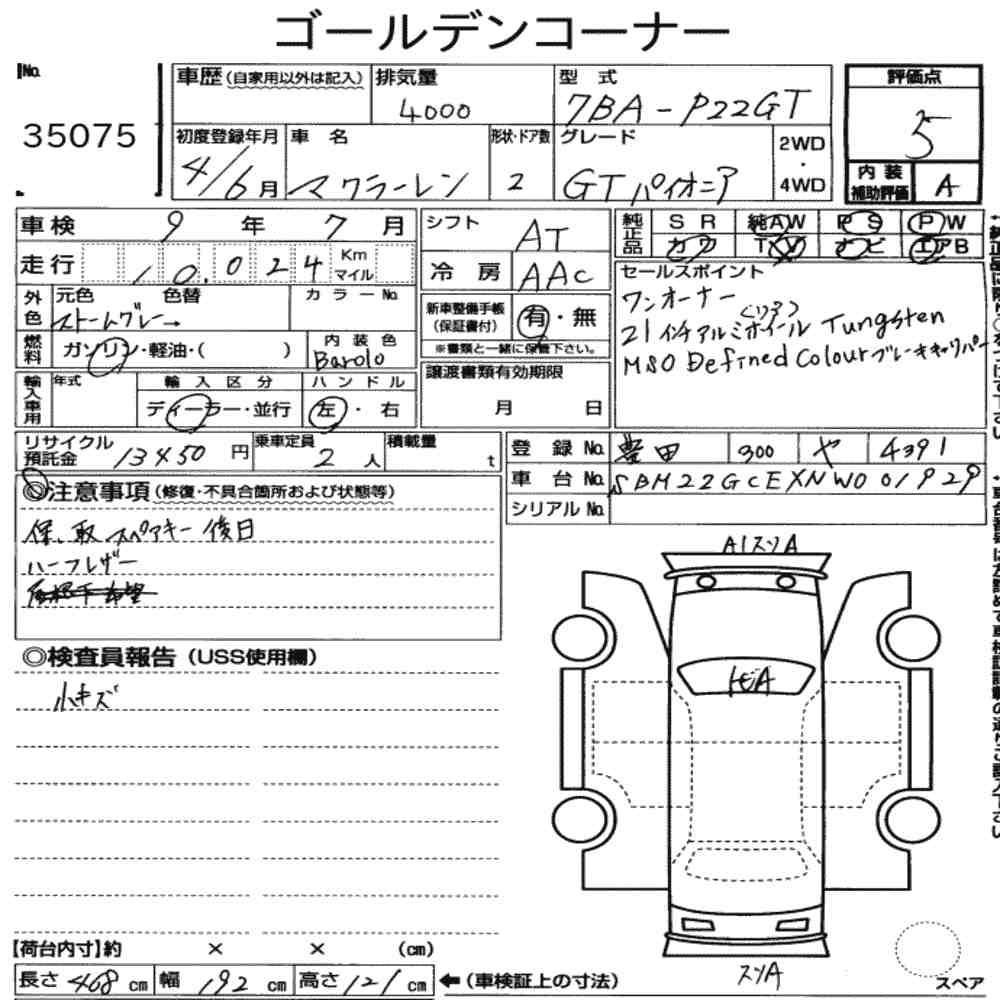 ゴールデンコーナー
No.
35075
車歴(自家用以外は記入) 排気量 型式
4000 7BA-P22GT
初度登録年月 車名 形状・ドア数 グレード 2WD・4WD
4/6月 マクラーレン 2 GTパイオニア
評価点
5
内装補助評価 A
車検 9年 7月
走行 10.024 Km マイル
外色 元色 色替 カラーNo.
ストームグレー→
燃料 ガソリン・軽油・( ) 内装色
Barolo
輸入車用 年式 輸入区分 ハンドル
ディーラー・並行 左・右
シフト AT
冷房 AAC
新車整備手帳(保証書付) 有・無
※書類と一緒に保管下さい。
譲渡書類有効期限
月 日
純正品 SR 純AW PS PW
カワ TV ナビ エアB
セールスポイント
ワンオーナー
21インチアルミホイール Tungsten
MSO Defined Colourブレーキキャリパー
リサイクル預託金 13450円 乗車定員 2人 積載量 t
登録No. 豊田 300 や 4391
車台No. SBM22GCEXNW001929
シリアルNo.
◎注意事項(修復・不具合箇所および状態等)
保、取 スペアキー 後日
ハーフレザー
◎検査員報告(USS使用欄)
小キズ
A1スリA
トビA
スリA
スペア
【荷台内寸】約 × × (cm)
長さ 468 cm 幅 192 cm 高さ 121 cm ←(車検証上の寸法)